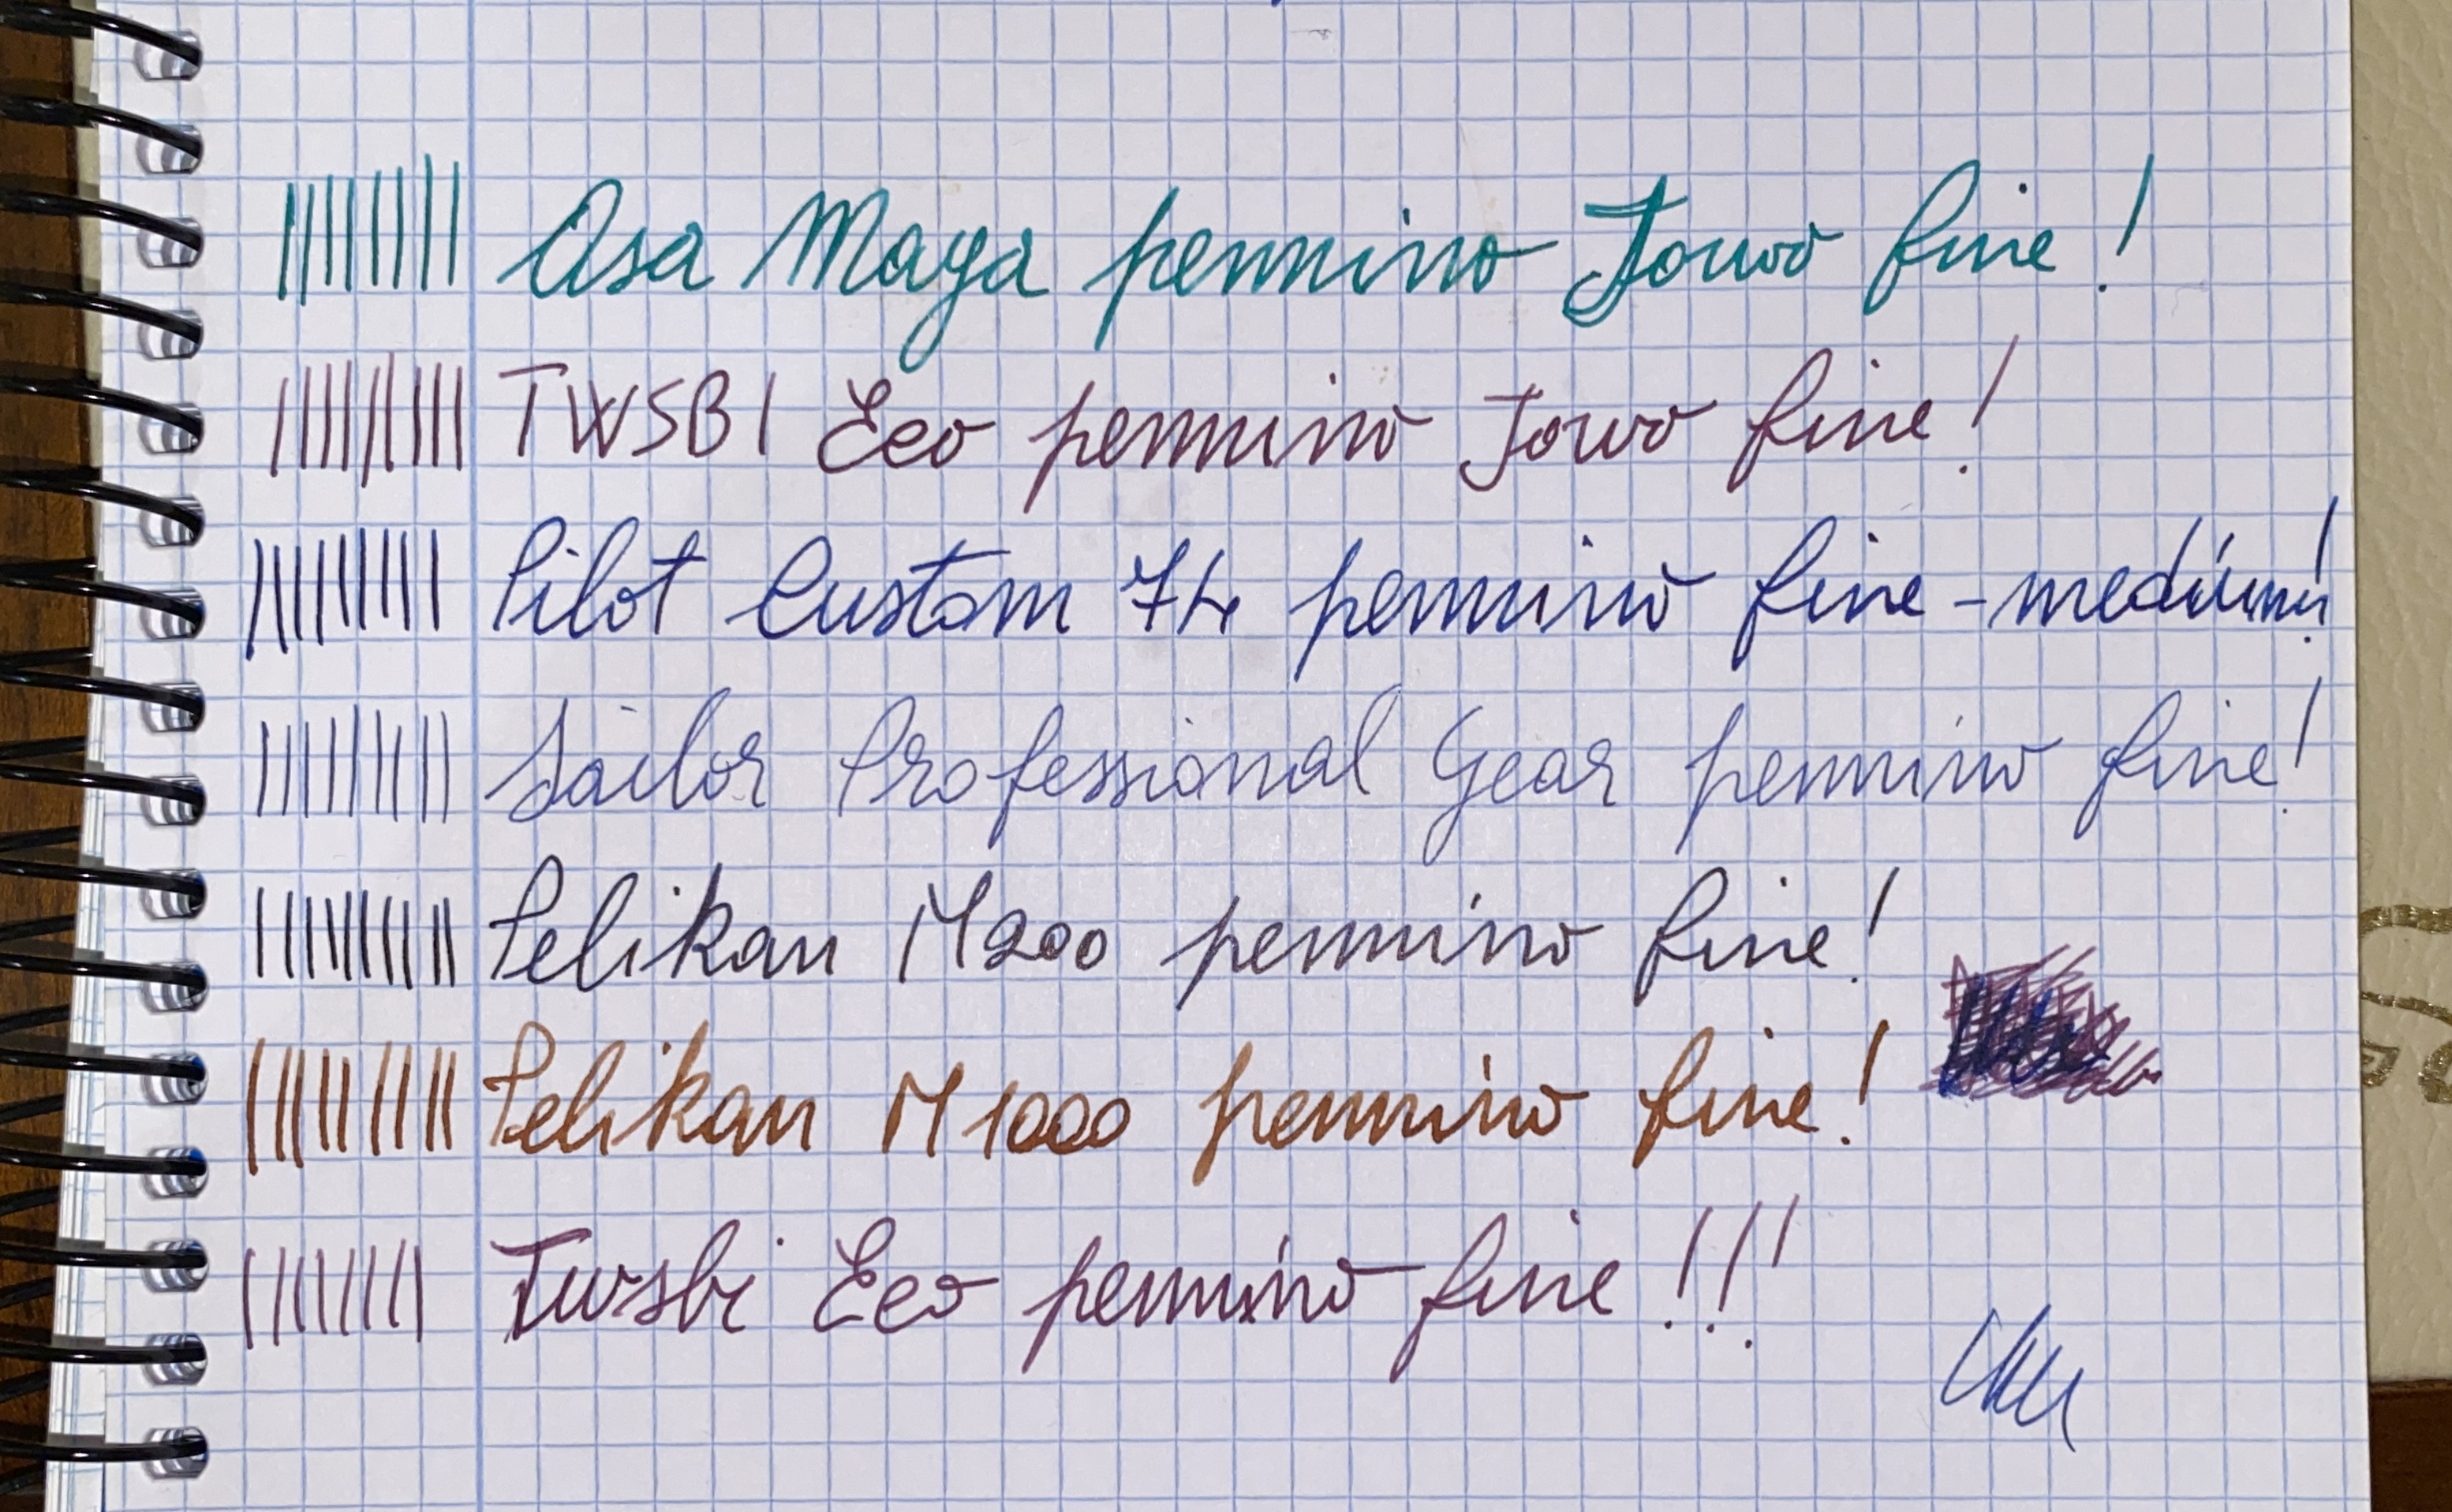 Asa Maya pennino Jowo fine!
TWSBI Eco pennino Jowo fine!
Pilot Custom 74 pennino fine-medium!
Sailor Professional Gear pennino fine!
Pelikan M200 pennino fine!
Pelikan M1000 pennino fine!
Twsbi Eco pennino fine!!!